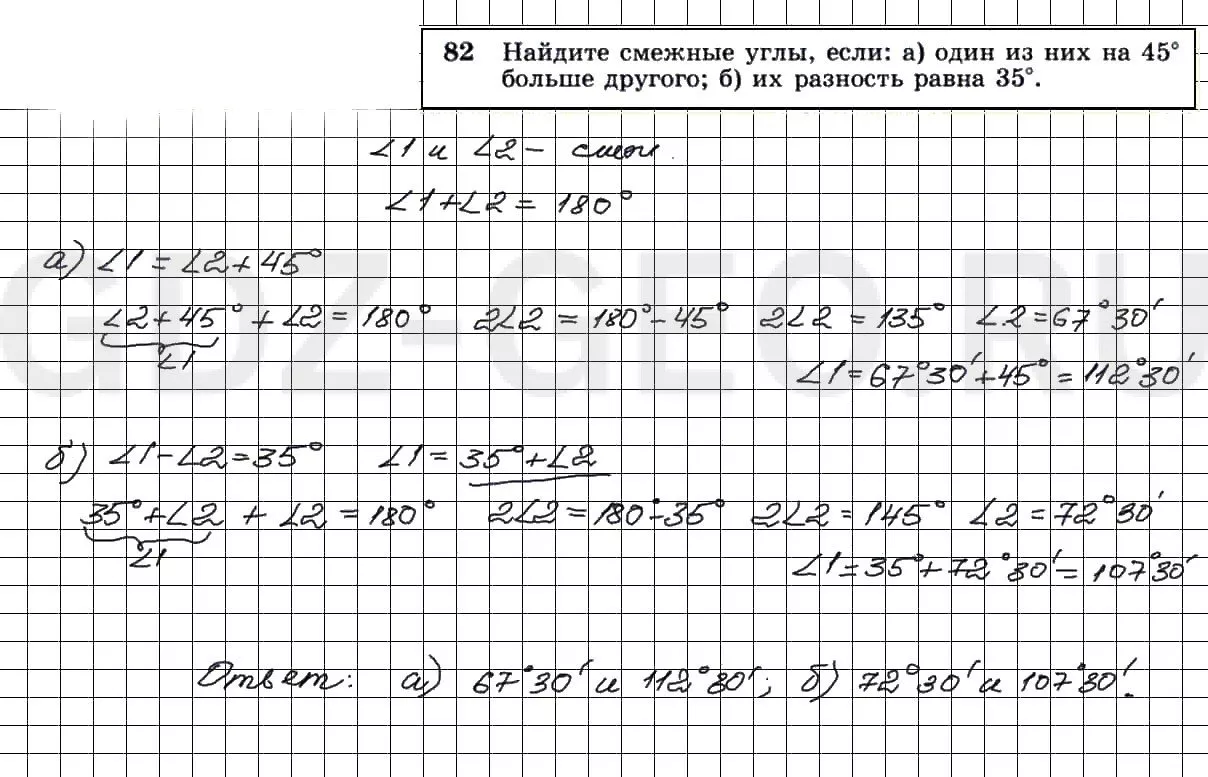 82 Найдите смежные углы, если: а) один из них на 45°
больше другого; б) их разность равна 35°.
∠1 и ∠2 – смеж.
∠1+∠2 = 180°
а) ∠1 = ∠2 + 45°
∠2 + 45° + ∠2 = 180° 2∠2 = 180° - 45° 2∠2 = 135° ∠2 = 67°30′
∠1
∠1 = 67°30′ + 45° = 112°30′
б) ∠1 - ∠2 = 35° ∠1 = 35° + ∠2
35° + ∠2 + ∠2 = 180° 2∠2 = 180° - 35° 2∠2 = 145° ∠2 = 72°30′
∠1
∠1 = 35° + 72°30′ = 107°30′
Ответ: а) 67°30′ и 112°30′; б) 72°30′ и 107°30′.
GDZ-GEO.RU